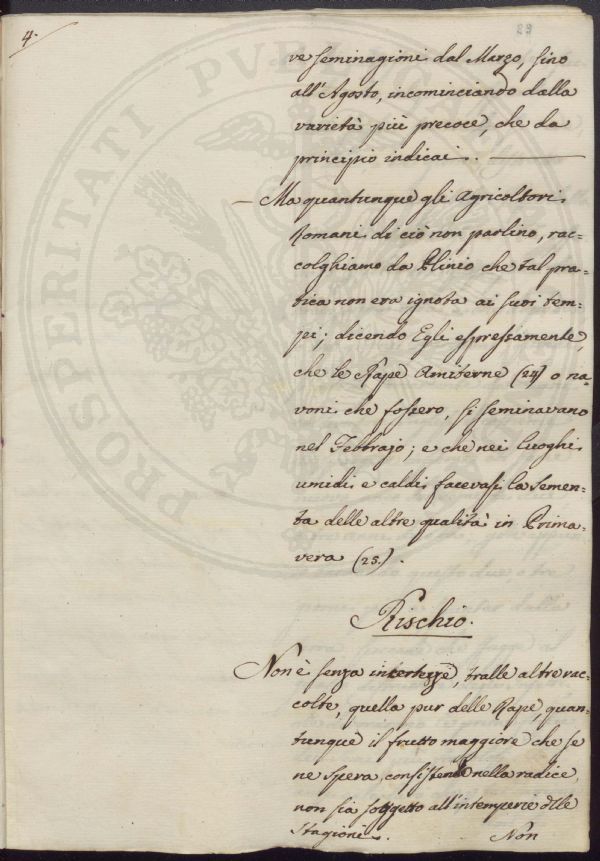 4.
22
ve seminagioni dal Marzo, sino
all'Agosto, incominciando dalla
varietà più precoce, che da
principio indicai. —
— Ma quantunque gli Agricoltori
Romani di ciò non parlino, rac=
colghiamo da Plinio che tal pra=
tica non era ignota ai suoi tem=
pi; dicendo Egli espressamente,
che le Rape Amiterne (24) o na=
voni che fossero, si seminavano
nel Febbrajo; e che nei luoghi
umidi e caldi facevasi la semen=
ta delle altre qualità in Prima=
vera (25.).
Rischio.
Non è senza incertezze, tralle altre rac=
colte, quella pur delle Rape, quan=
tunque il frutto maggiore che se
ne spera, consistendo nella radice,
non sia soggetto all'intemperie dlle
Stagioni.
Non
PROSPERITATI PUBLICAE